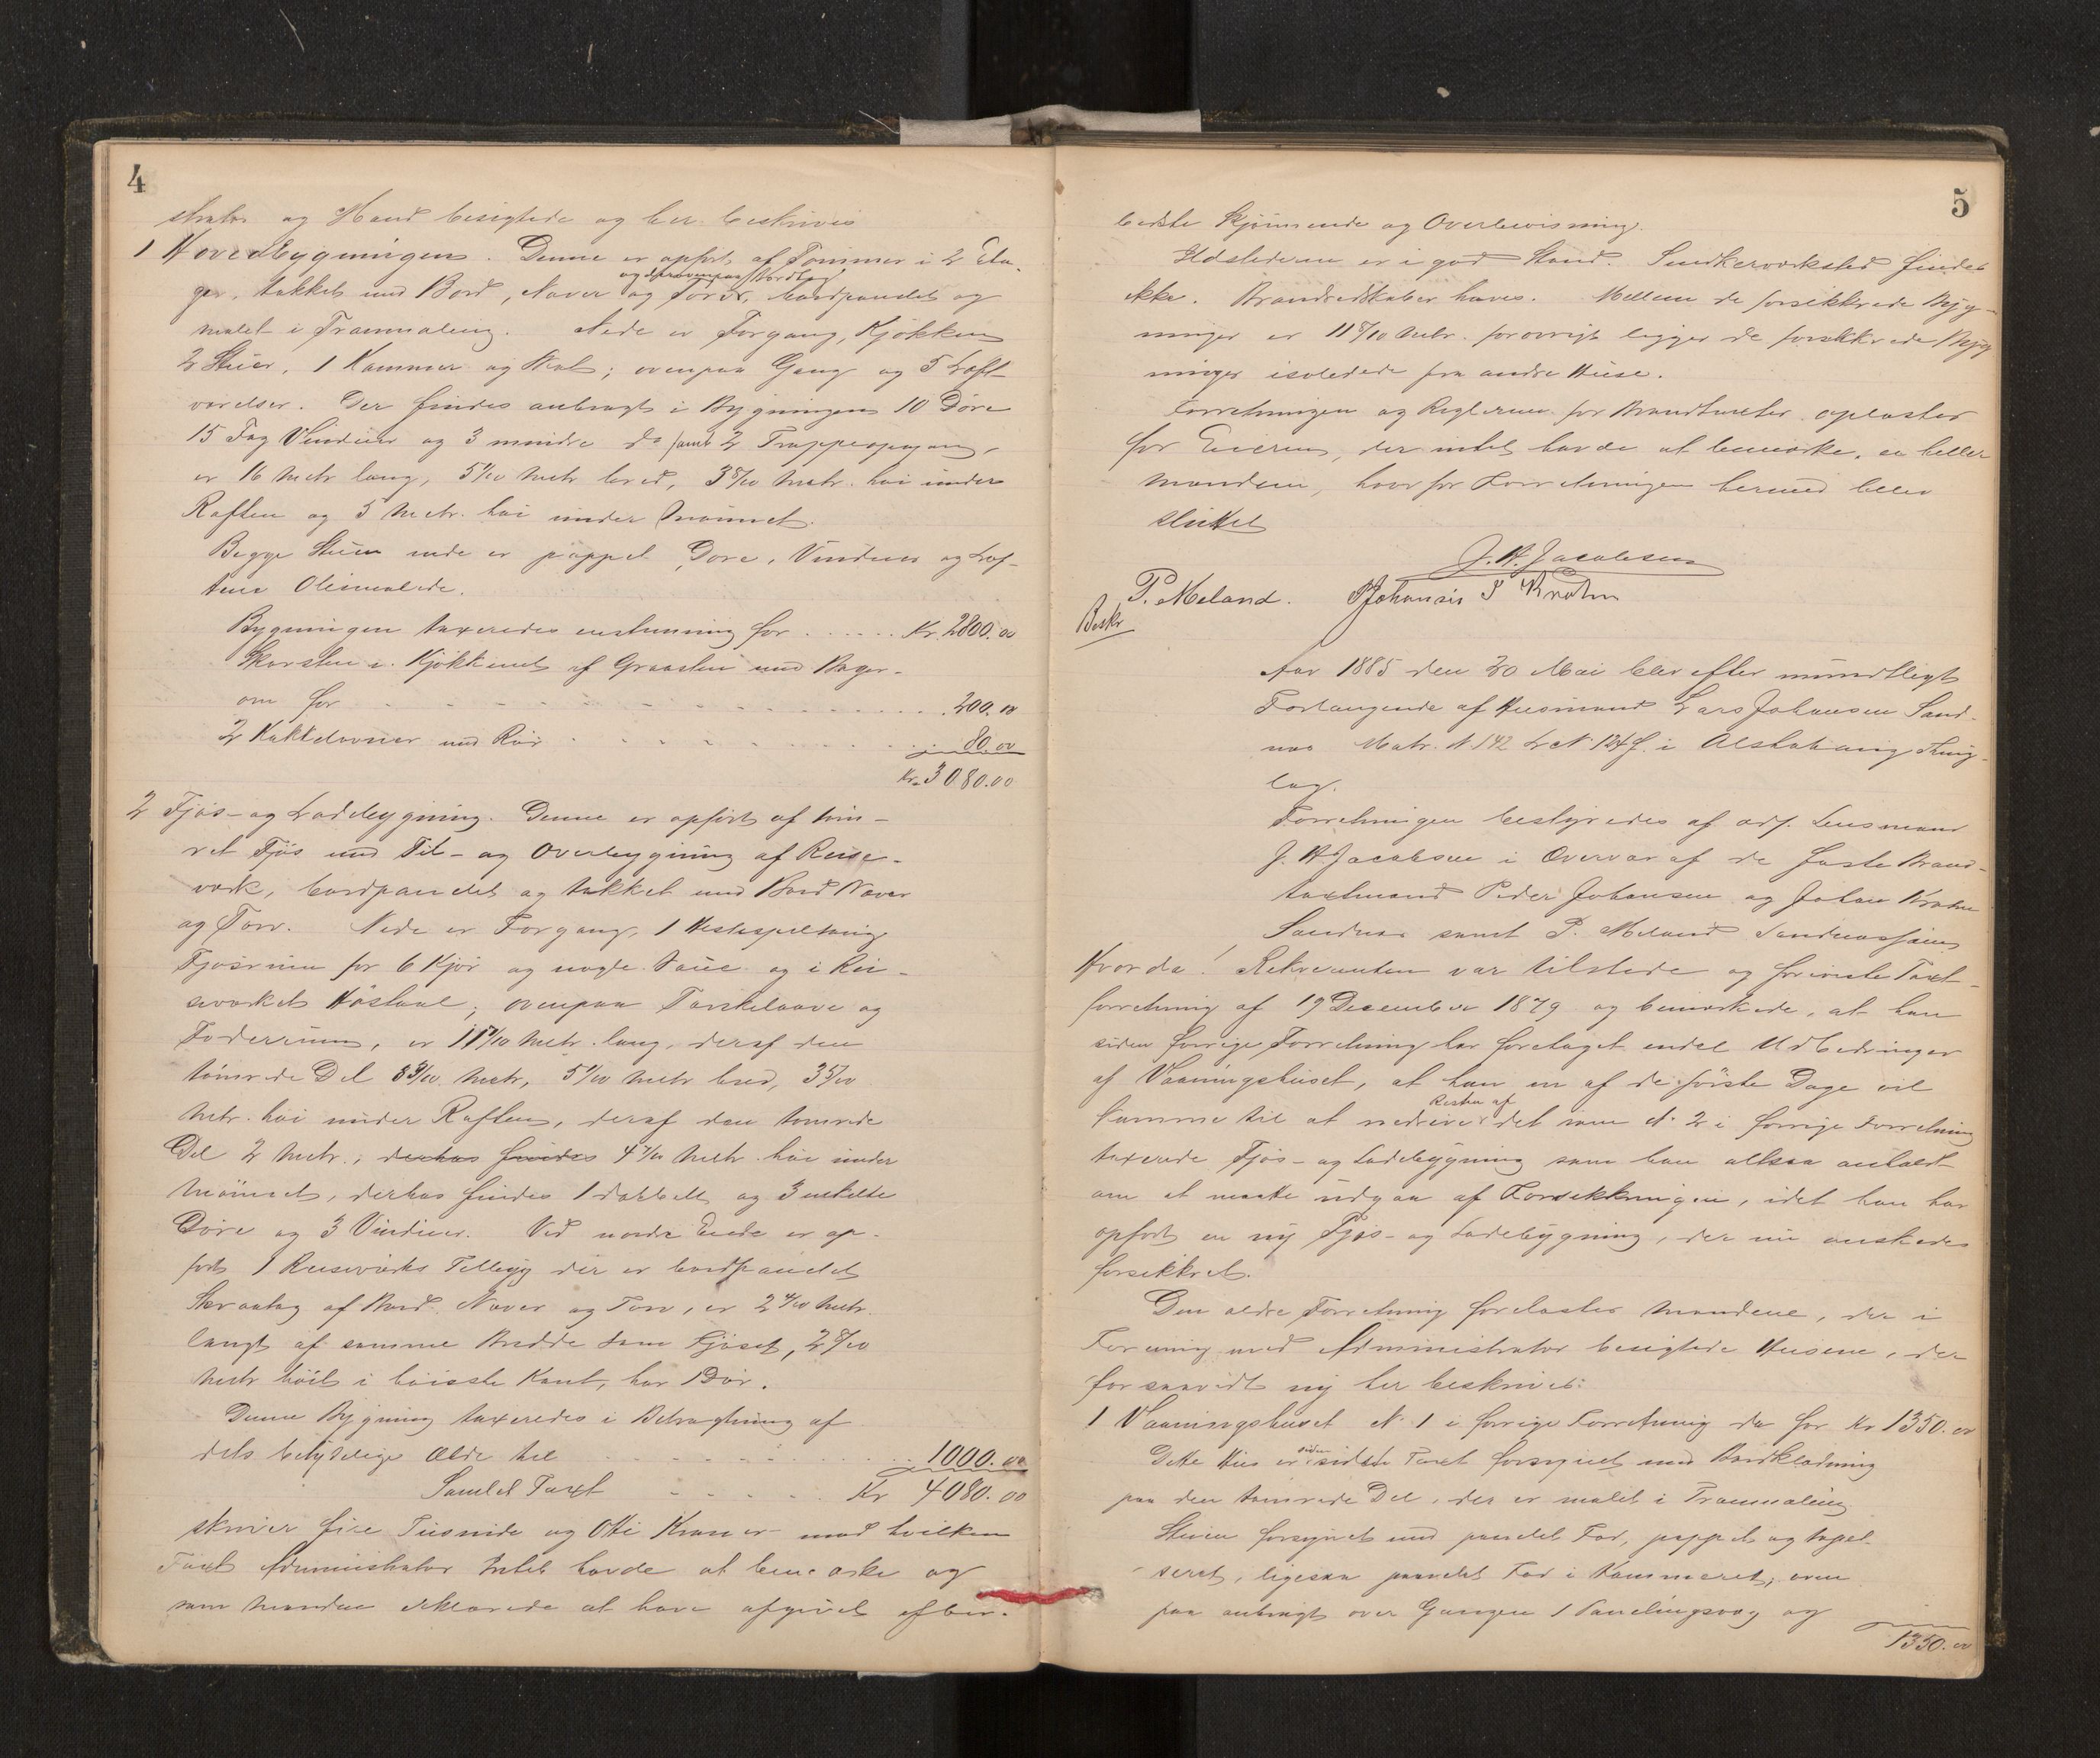 4
strator og Mænd besigtede og her beskrives
1 Hovedbygningen. Denne er opført af Tømmer i 2 Eta-
ger, tækket med Bord, Næver og Torv, bordpandet og
malet i Tranmaling. Nede er Forgang, Kjøkken
2 Stuer, 1 Kammer og Skot; ovenpaa Gang og 5 Loft-
værelser. Der findes anbragt i Bygningen 10 Døre
15 Fag Vinduer og 3 mindre do samt 2 Trappeopgang,
er 16 Metr lang, 5 1/10 Metr bred, 3 8/10 Metr. høi under
Raften og 5 Metr. høi under Mønnet.
Begge Stuer nede er pappet Døre, Vinduer og Lof-
tene Oliemalede.
Bygningen taxeredes enstemmig for ...... Kr 2800.00
Skorsten i Kjøkkenet af Graasten med Bager-
ovn for . . . . 200.00
2 Kakkelovner med Rør . . . . 80.00
Kr. 3080.00
2 Fjøs- og Ladebygning. Denne er opført af tøm-
ret Fjøs med Til- og Overbygning af Reise-
værk, bordpandet og tækket med Bord Næver
og Torv. Nede er Forgang, 1 Hestespiltaug
Fjøsrum for 6 Kjør og nogle Saue og i Rei-
seværket Høstaal; ovenpaa Tærskelaave og
Foderrum, er 11 7/10 Metr. lang, deraf den
tømrede Del 8 8/10 Metr, 5 1/10 Metr bred, 3 5/10
Metr. høi under Raften, deraf den tømrede
Del 2 Metr.; derhos findes 4 7/10 Metr. høi under
Mønnet, derhos findes 1 dobbelt og 3 enkelte
Døre og 3 Vinduer. Ved nordre Ende er op-
ført 1 Reiseværks Tilbyg der er bordpandet
Skraatag af Bord Næver og Torv, er 2 4/10 Metr.
langt af samme Bredde som Fjøset, 2 8/10
Metr høit i høieste Kant, har 1 Dør.
Denne Bygning taxeredes i Betragtning af
dets betydelige Ælde til . . . . 1000.00
Samlet Taxt . . . . . Kr 4080.00
skriver fire Tusinde og Otti Kroner mod hvilken
Taxt Administrator Intet havde at bemærke og
som Mændene erklærede at have afgivet efter-
5
bedste Skjønnende og Overbevisning.
Ildstederne er i god Stand. Snedkerværksted findes
ikke. Brandredskaber haves. Mellem de forsikkrede Byg-
ninger er 11 8/10 Metr. forøvrigt ligger de forsikkrede Byg
ninger isolerede fra andre Huse.
Forretningen og Reglerne for Brandtaxter oplæstes
for Eieren, der intet havde at bemærke, ei heller
Mændene, hvorfor Forretningen hermed blev
sluttet
J. A. Jacobsen
P. Meland. Johansen Krohn
Beskr
Aar 1885 den 30 Mai blev efter mundtligt
Forlangende af Husmand Lars Johansen Sand-
naa Matr. N 142 L N 124 f. i Alstahaug Thing-
lag.
Forretningen bestyredes af adj. Lensmand
J. A. Jacobsen i Overvær af de faste Brand-
taxtmænd Peder Johansen og Johan Krohn
Sandnaa samt P. Meland Sandnæssjøen
Hvorda! Rekvirenten var tilstede og foreviste Taxt-
forretning af 19 December 1879 og bemærkede, at han
siden forrige Forretning har foretaget endel Udbedringer
af Vaaningshuset, at han en af de første Dage vil
Resten af
komme til at nedrive det som N. 2 i forrige Forretning
taxerede Fjøs- og Ladebygning som han altsaa anholdt
om at maatte udgaa af Forsikkringen, idet han har
opført en ny Fjøs- og Ladebygning, der nu ønskedes
forsikkret.
Den ældre Forretning forelæstes Mændene, der i
Forening med Administrator besigtede Husene, der
forsaavidt ny her beskrives:
1 Vaaningshuset N. 1 i forrige Forretning do for Kr 1350.00
Dette Hus er siden sidste Taxt forsynet med Bordklædning
paa den tømrede Del, der er malet i Tranmaling
Stuen forsynet med pandet For, pappet og tapet-
seret, ligesaa pandet For i Kammeret; oven
paa anbragt over Gangen 1 Pandingsvæg og
1350.00